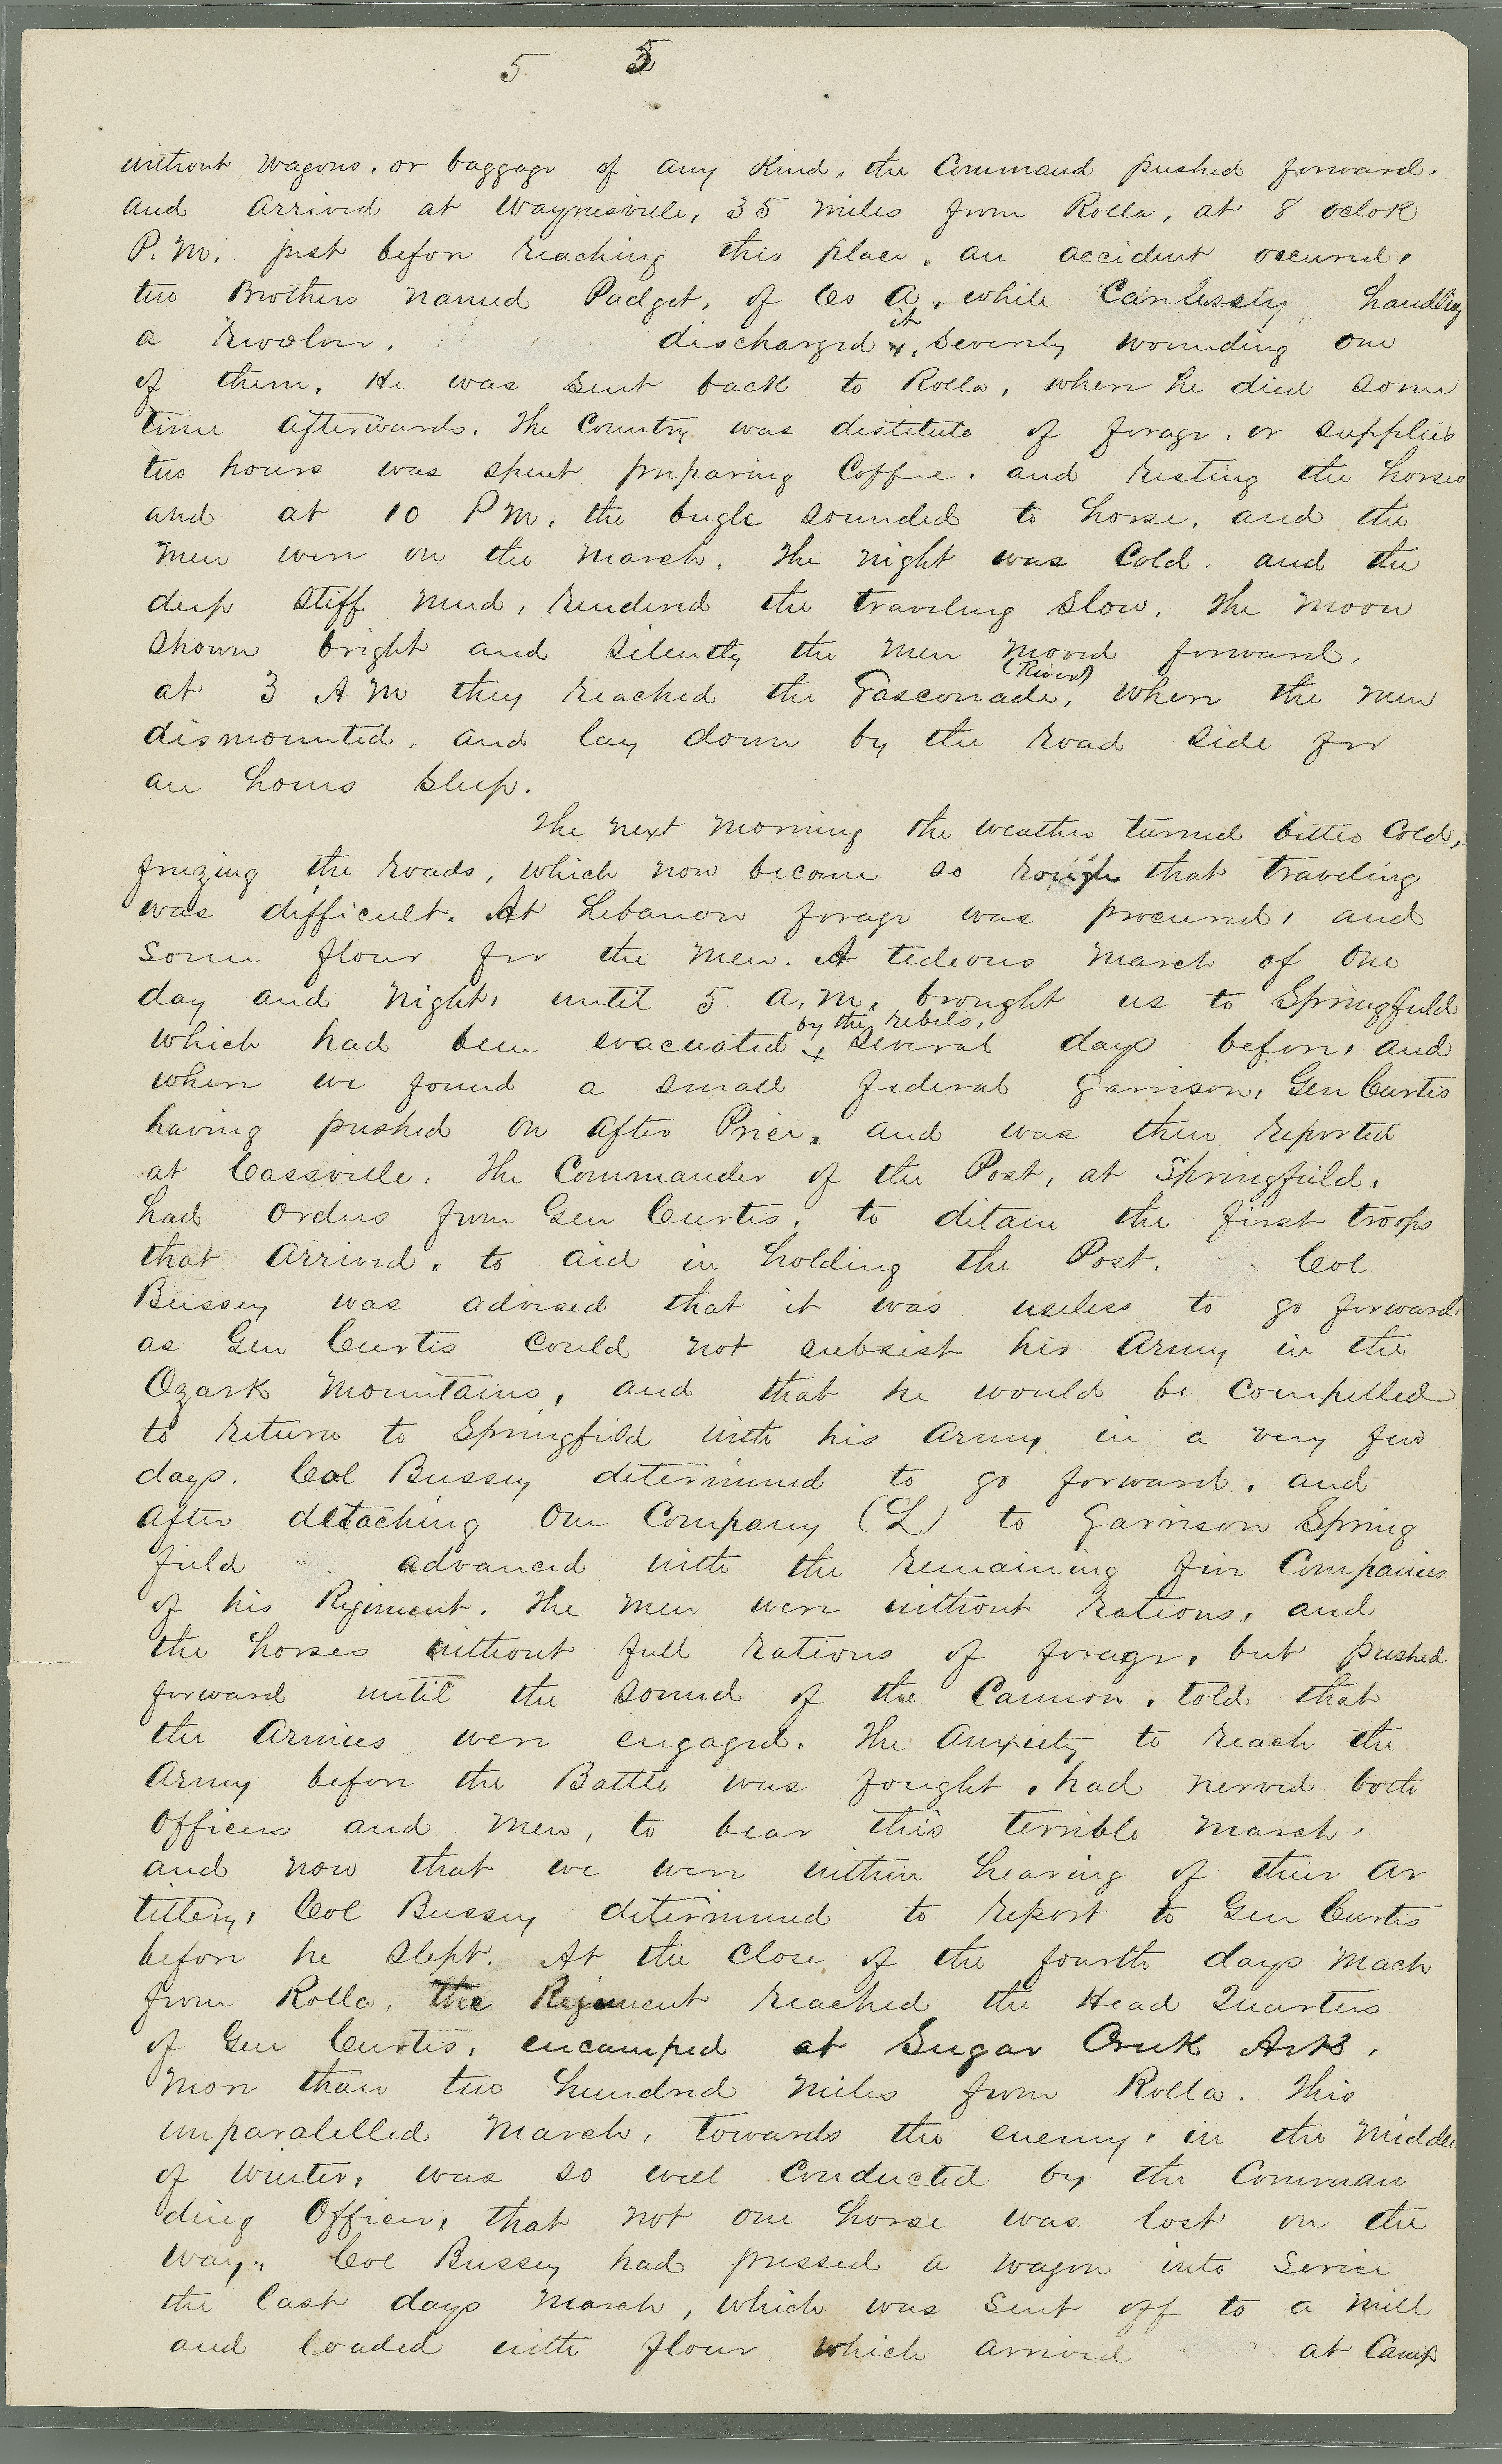 5 5
without wagons, or baggage of any Kind, the Command pushed forward.
and arrived at Waynesville, 35 miles from Rolla, at 8 oclok
P.M. just before reaching this place, an accident occured,
two Brothers named Padget, of Co A, while Carelessly handling
a revolver, discharged it, severely wounding one
of them, He was sent back to Rolla, where he died some
time afterwards. The Country was distitute of forage, or supplies
two hours was spent preparing Coffee, and resting the horses
and at 10 P M, the bugle sounded to horse, and the
men were on the march, The night was Cold, and the
deep stiff mud, rendered the traveling slow, The moon
shown bright and silently the men moved forward,
at 3 A M they reached the Gasconade, (River) where the men
dismounted, and lay down by the road side for
an hours sleep.
The next morning the weather turned bitter Cold,
freezing the roads, which now become so rough that traveling
was difficult. At Lebanon forage was procured, and
some flour for the men. A tedeous march of One
day and night, until 5 a.m. brought us to Springfield
which had been evacuated by the rebels, several days before, and
where we found a small federal garrison, Gen Curtis
having pushed on after Price, and was then reported
at Cassville. The Commander of the Post, at Springfield,
had orders from Gen Curtis, to ditain the first troops
that arrived, to aid in holding the Post. Col
Bussey was advised that it was useless to go forward
as Gen Curtis could not subsist his Army in the
Ozark Mountains, and that he would be compelled
to return to Springfield with his Army in a very few
days. Col Bussey determined to go forward, and
after detaching One Company (L) to Garrison Spring
field advanced with the remaining five Companies
of his Regiment. The men were without rations, and
the horses without full rations of forage, but pushed
forward until the sound of the Cannon, told that
the Armies were engaged. The Anxiety to reach the
Army before the Battle was fought, had nerved both
Officers and men, to bear this terrible march,
and now that we were within hearing of their Ar
tillery, Col Bussey determined to report to Gen Curtis
before he slept. At the close of the fourth days Mach
from Rolla, the Regiment reached the Head Quarters
of Gen Curtis, encamped at Sugar Creek Arks,
More than two hundred miles from Rolla. This
unparalelled march, towards the enemy, in the Middle
of winter, was so well Conducted by the Comman
ding Officer, that not one horse was lost on the
way. Col Bussey had pressed a wagon into Service
the last days march, which was sent off to a mill
and loaded with flour, which arrived at Camp